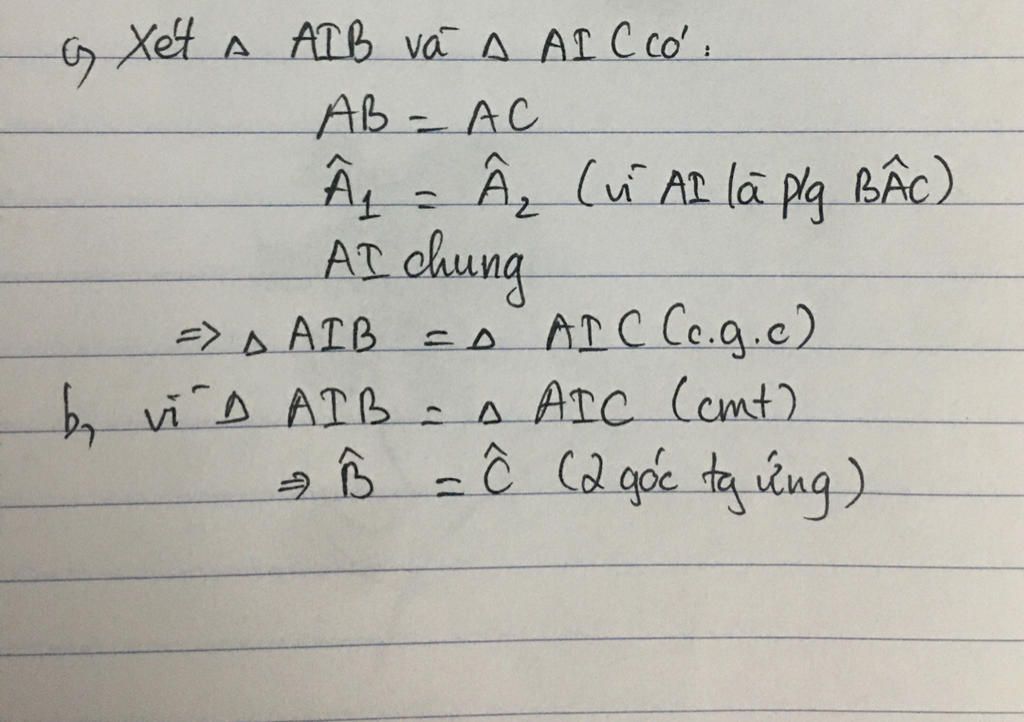 a, Xét Δ AIB và Δ AIC có:
AB = AC
Â₁ = Â₂ (vì AI là p/g BÂC)
AI chung
=> Δ AIB = Δ AIC (c.g.c)
b, vì Δ AIB = Δ AIC (cmt)
=> B̂ = Ĉ (2 góc tg ứng)